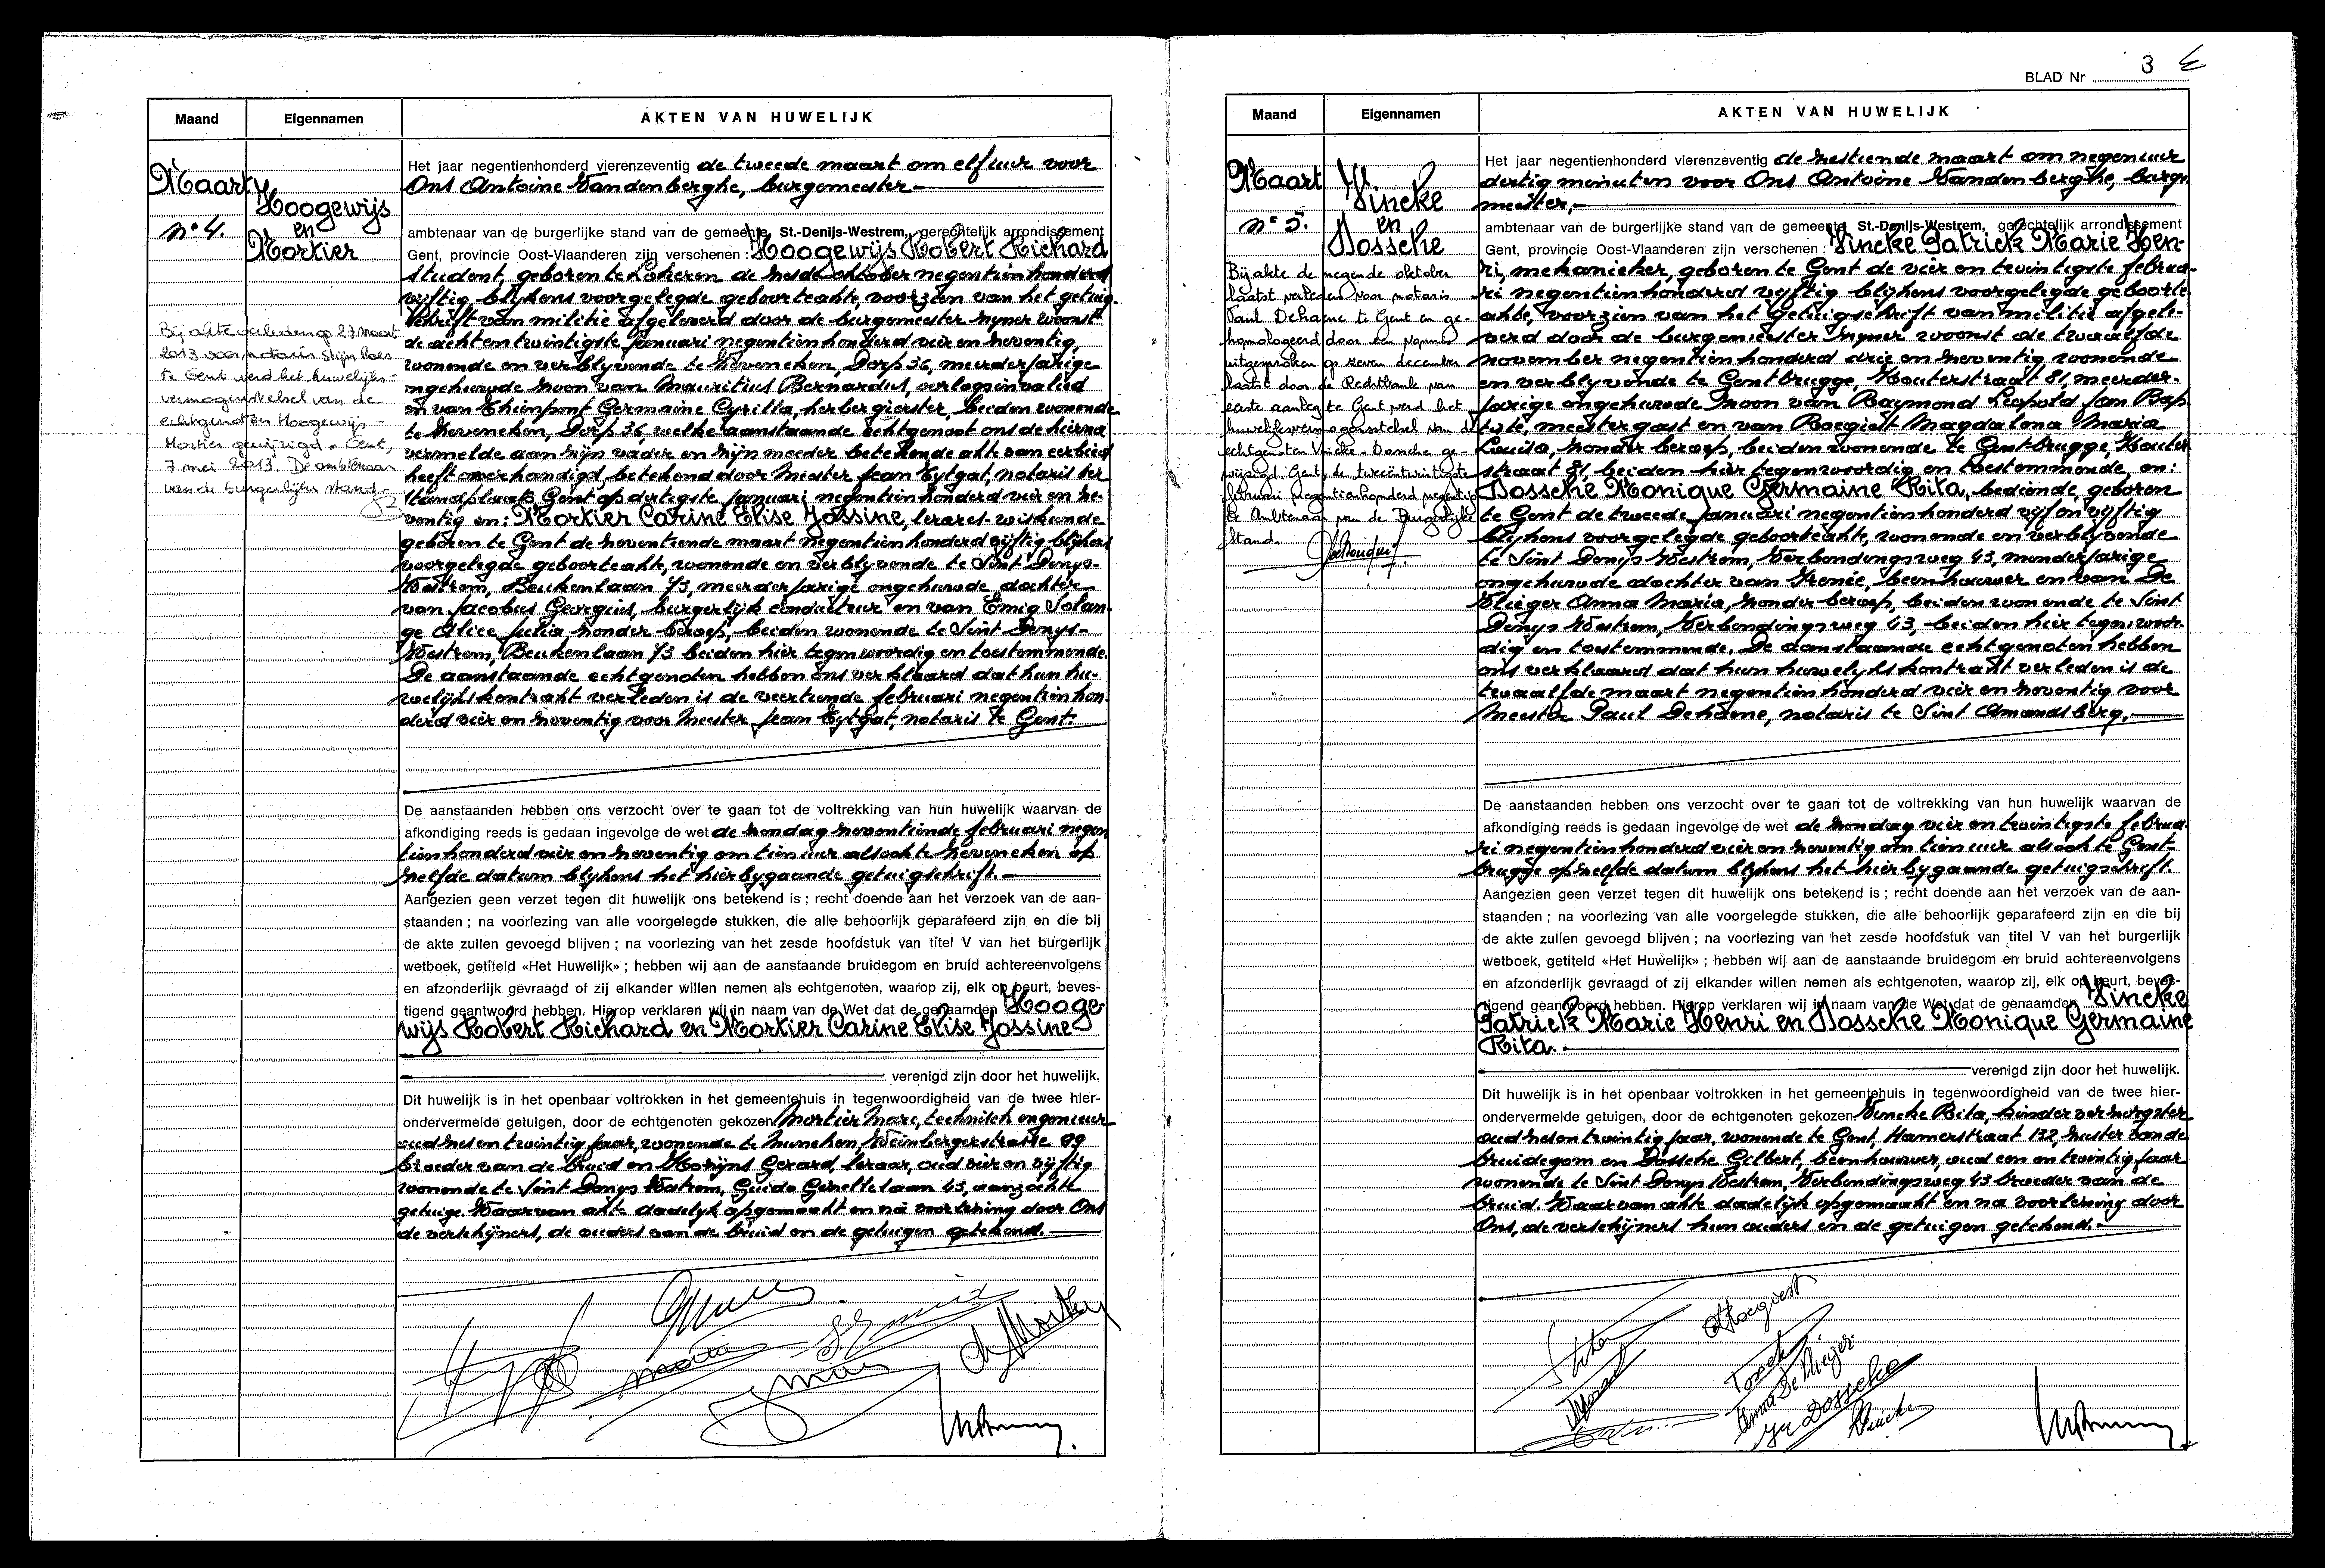 Maand
Eigennamen
AKTEN VAN HUWELIJK
Maart
n° 4.
Hoogewijs
en
Mortier
Bij akte verleden op 27 maart
2013 voor notaris Stijn Raes
te Gent werd het huwelijks-
vermogenstelsel van de
echtgenoten Hoogewijs-
Mortier gewijzigd. Gent,
7 mei 2013. De ambtenaar
van de burgerlijke stand
Het jaar negentienhonderd vierenzeventig de tweede maart om elf uur voor
Ons Antoine Vandenberghe, burgemeester
ambtenaar van de burgerlijke stand van de gemeente St.-Denijs-Westrem, gerechtelijk arrondissement
Gent, provincie Oost-Vlaanderen zijn verschenen : Hoogewijs Robert Richard
student, geboren te Lokeren de zesde oktober negentienhonderd
vijftig blijkens voorgelegde geboorteakte, voorzien van het getuig-
schrift van militie afgeleverd door de burgemeester zijner woonst
de achtentwintigste januari negentienhonderd vier en zeventig,
wonende en verblijvende te Zeveneken, Dorp 36, meerderjarige
ongehuwde zoon van Mauritius Bernardus, oorlogsinvalied
en van Thienpont Germaine Cyrilla, herbergierster, beiden wonende
te Zeveneken, Dorp 36 welke aanstaande echtgenoot ons de hierna
vermelde aan zijn vader en zijn moeder betekende akte van eerbied
heeft overhandigd betekend door Meester Jean Eytgat, notaris ter
standplaats Gent op dertigste januari negentienhonderd vier en ze-
ventig en: Mortier Carine Elise Jossine, lerares-wiskunde
geboren te Gent de zeventiende maart negentienhonderd vijftig blijkens
voorgelegde geboorteakte, wonende en verblijvende te Sint Denys-
Westrem, Beukenlaan 73, meerderjarige ongehuwde dochter
van Jacobus Georgius, burgerlijk conducteur en van Emig Solan-
ge Alice Julia, zonder beroep, beiden wonende te Sint Denys-
Westrem, Beukenlaan 73 beiden hier tegenwoordig en toestemmende.
De aanstaande echtgenoten hebben ons verklaard dat hun hu-
welijkskontrakt verleden is de veertiende februari negentienhon-
derd vier en zeventig voor Meester Jean Eytgat, notaris te Gent.
De aanstaanden hebben ons verzocht over te gaan tot de voltrekking van hun huwelijk waarvan de
afkondiging reeds is gedaan ingevolge de wet de zondag zeventiende februari negen
tienhonderd vier en zeventig om tien uur alsook te Zeveneken op
zelfde datum blijkens het hierbygaande getuigschrift.
Aangezien geen verzet tegen dit huwelijk ons betekend is ; recht doende aan het verzoek van de aan-
staanden ; na voorlezing van alle voorgelegde stukken, die alle behoorlijk geparafeerd zijn en die bij
de akte zullen gevoegd blijven ; na voorlezing van het zesde hoofdstuk van titel V van het burgerlijk
wetboek, getiteld «Het Huwelijk» ; hebben wij aan de aanstaande bruidegom en bruid achtereenvolgens
en afzonderlijk gevraagd of zij elkander willen nemen als echtgenoten, waarop zij, elk op beurt, beves-
tigend geantwoord hebben. Hierop verklaren wij in naam van de Wet dat de genaamden Hooge-
wijs Robert Richard en Mortier Carine Elise Jossine
verenigd zijn door het huwelijk.
Dit huwelijk is in het openbaar voltrokken in het gemeentehuis in tegenwoordigheid van de twee hier-
ondervermelde getuigen, door de echtgenoten gekozen Mortier Marc, technisch ingenieur
oud zesentwintig jaar, wonende te Munchen, Weinbergerstrasse 99
broeder van de bruid en Martijns Gerard, leraar, oud vier en vijftig
wonende te Sint Denys Westrem, Guido Gezellelaan 45, aangezochte
getuige. Waarvan akte dadelijk opgemaakt en na voorlezing door Ons
de verschijners, de ouders van de bruid en de getuigen getekend.
BLAD Nr 3
Maand
Eigennamen
AKTEN VAN HUWELIJK
Maart
n° 5.
Vincke
en
Dossche
Bij akte de negende oktober
laatst verleden voor notaris
Paul Dehaene te Gent en ge-
homologeerd door een vonnis
uitgesproken op zeven december
laatst door de Rechtbank van
eerste aanleg te Gent werd het
huwelijksvermogensstelsel van de
echtgenoten Vincke-Dossche ge-
wijzigd. Gent, de tweeëntwintigste
februari negentienhonderd negentig
De Ambtenaar van de Burgerlijke
Stand.
Het jaar negentienhonderd vierenzeventig de zestiende maart om negen uur
dertig minuten voor Ons Antoine Vandenberghe, burge-
meester,
ambtenaar van de burgerlijke stand van de gemeente St.-Denijs-Westrem, gerechtelijk arrondissement
Gent, provincie Oost-Vlaanderen zijn verschenen : Vincke Patrick Marie Hen-
ri, mekanieker, geboren te Gent de vier en twintigste februa-
ri negentienhonderd vijftig blijkens voorgelegde geboorte
akte, voorzien van het getuigschrift van militie afgele-
verd door de burgemeester zijner woonst de twaalfde
november negentienhonderd drie en zeventig wonende
en verblijvende te Gentbrugge, Houterstraat 81, meerder-
jarige ongehuwde zoon van Raymond Leopold Jan Bap
tiste, meestergast en van Roegiest Magdalena Maria
Louisa, zonder beroep, beiden wonende te Gentbrugge, Houter
straat 81, beiden hier tegenwoordig en toestemmende, en:
Dossche Monique Germaine Rita, bediende, geboren
te Gent de tweede januari negentienhonderd vijf en vijftig
blijkens voorgelegde geboorteakte, wonende en verblijvende
te Sint Denys Westrem, Verbindingsweg 43, minderjarige
ongehuwde dochter van Irenée, beenhouwer en van De
Vlieger Anna Maria, zonder beroep, beiden wonende te Sint
Denys Westrem, Verbindingsweg 43, beiden hier tegenwoor-
dig en toestemmende. De aanstaande echtgenoten hebben
ons verklaard dat hun huwelijkskontrakt verleden is de
twaalfde maart negentienhonderd vier en zeventig voor
Meester Paul Dehaene, notaris te Sint Amandsberg.
De aanstaanden hebben ons verzocht over te gaan tot de voltrekking van hun huwelijk waarvan de
afkondiging reeds is gedaan ingevolge de wet de zondag vier en twintigste februa-
ri negentienhonderd vier en zeventig om tien uur alsook te Gent-
brugge op zelfde datum blijkens het hierbygaande getuigschrift.
Aangezien geen verzet tegen dit huwelijk ons betekend is ; recht doende aan het verzoek van de aan-
staanden ; na voorlezing van alle voorgelegde stukken, die alle behoorlijk geparafeerd zijn en die bij
de akte zullen gevoegd blijven ; na voorlezing van het zesde hoofdstuk van titel V van het burgerlijk
wetboek, getiteld «Het Huwelijk» ; hebben wij aan de aanstaande bruidegom en bruid achtereenvolgens
en afzonderlijk gevraagd of zij elkander willen nemen als echtgenoten, waarop zij, elk op beurt, beves-
tigend geantwoord hebben. Hierop verklaren wij in naam van de Wet dat de genaamden Vincke
Patrick Marie Henri en Dossche Monique Germaine
Rita.
verenigd zijn door het huwelijk.
Dit huwelijk is in het openbaar voltrokken in het gemeentehuis in tegenwoordigheid van de twee hier-
ondervermelde getuigen, door de echtgenoten gekozen Vincke Rita, kinderverzorgster
oud zesentwintig jaar, wonende te Gent, Hamerstraat 132, zuster van de
bruidegom en Dossche Gilbert, beenhouwer, oud een en twintig jaar
wonende te Sint Denys Westrem, Verbindingsweg 43 broeder van de
bruid. Waarvan akte dadelijk opgemaakt en na voorlezing door
Ons, de verschijners hun ouders en de getuigen getekend.
Roegiest
Anna De Vlieger
Dossche
Vincke